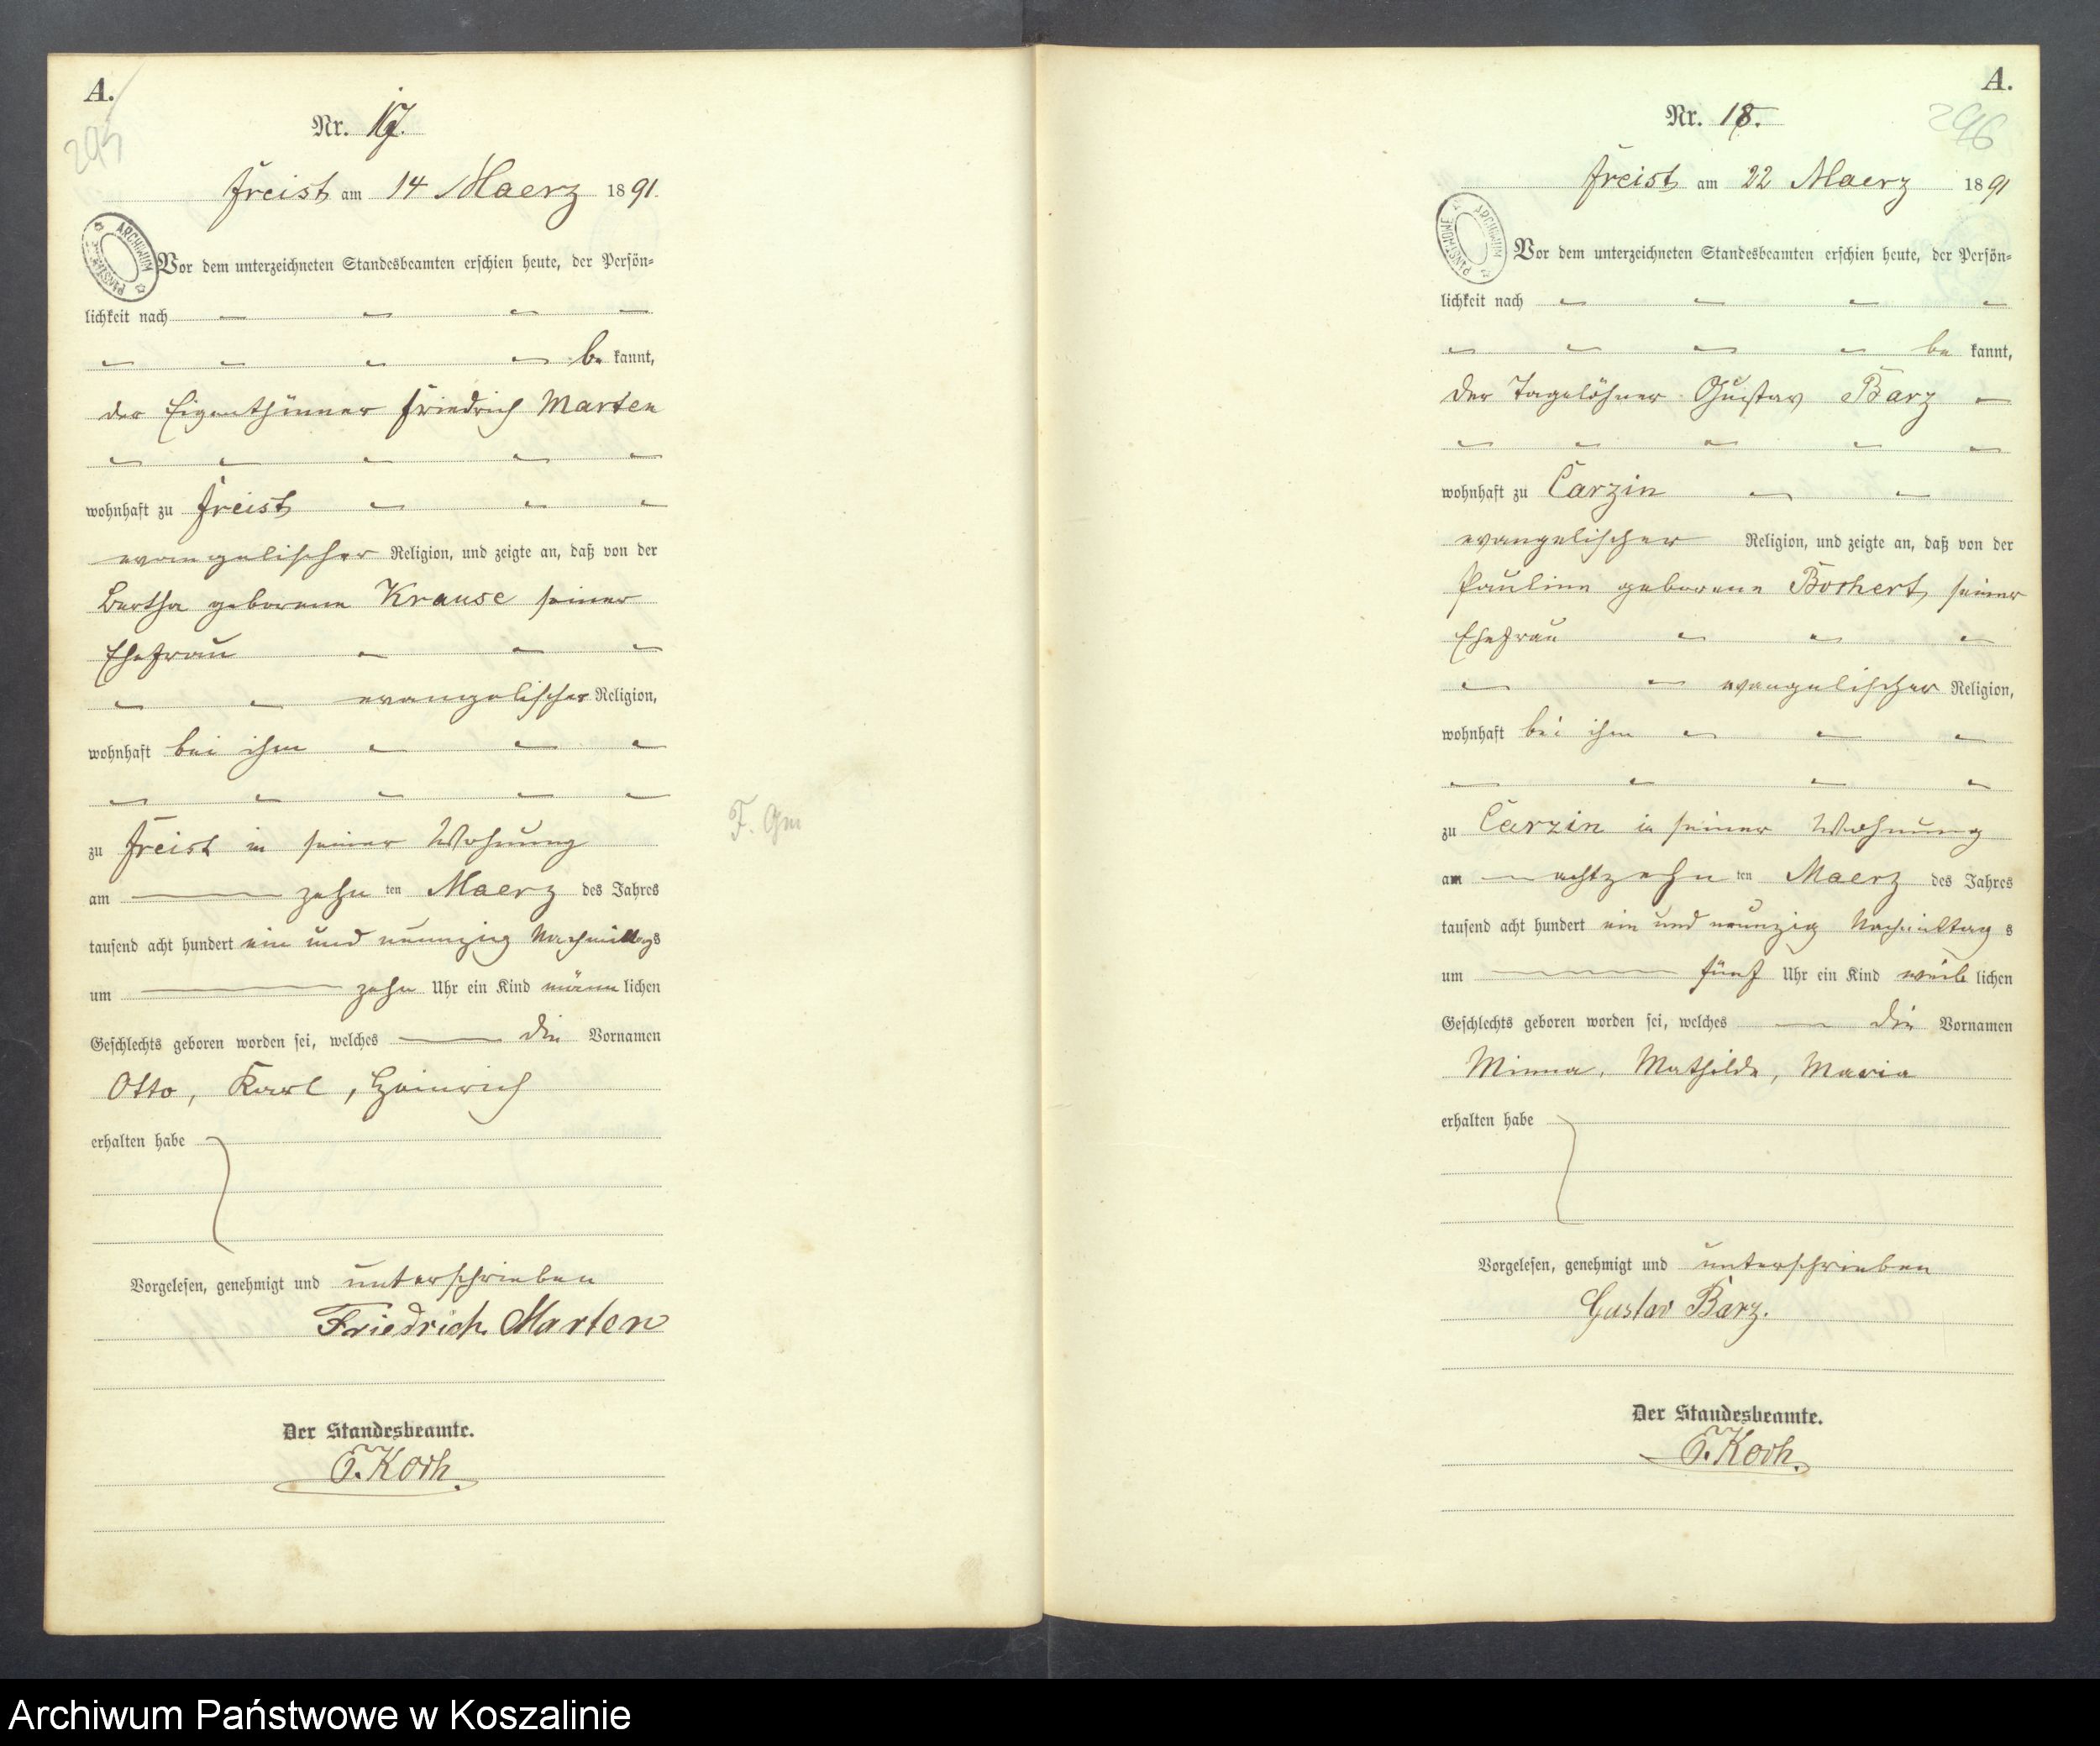 A.
295
Nr. 17.
Freist am 14 Maerz 1891.
ARCHIWUM PAŃSTWOWE
Vor dem unterzeichneten Standesbeamten erschien heute, der Persön-
lichkeit nach
be kannt,
der Eigenthümer Friedrich Marten
wohnhaft zu Freist
evangelischer Religion, und zeigte an, daß von der
Bertha geborene Krause seiner
Ehefrau
evangelischer Religion,
wohnhaft bei ihm
zu Freist in seiner Wohnung
am zehn ten Maerz des Jahres
tausend acht hundert ein und neunzig Nachmittags
um zehn Uhr ein Kind männ lichen
Geschlechts geboren worden sei, welches die Vornamen
Otto, Karl, Heinrich
erhalten habe
Vorgelesen, genehmigt und unterschrieben
Friedrich Marten
Der Standesbeamte.
E. Koch.
F. Gm
A.
296
Nr. 18.
Freist am 22 Maerz 1891
ARCHIWUM PAŃSTWOWE
Vor dem unterzeichneten Standesbeamten erschien heute, der Persön-
lichkeit nach
be kannt,
der Tagelöhner Gustav Barz
wohnhaft zu Carzin
evangelischer Religion, und zeigte an, daß von der
Pauline geborene Borhert seiner
Ehefrau
evangelischer Religion,
wohnhaft bei ihm
zu Carzin in seiner Wohnung
am achtzehn ten Maerz des Jahres
tausend acht hundert ein und neunzig Nachmittag s
um fünf Uhr ein Kind weib lichen
Geschlechts geboren worden sei, welches die Vornamen
Minna, Mathilde, Maria
erhalten habe
Vorgelesen, genehmigt und unterschrieben
Gustav Barz.
Der Standesbeamte.
E. Koch.
Archiwum Państwowe w Koszalinie